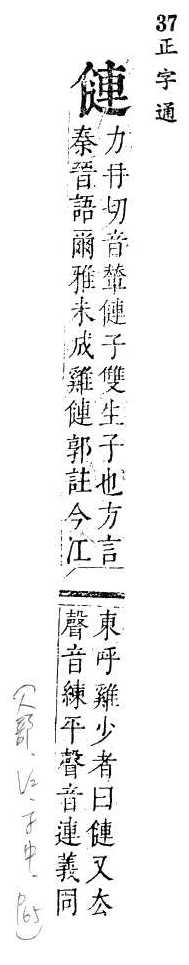 37 正字通
僆
力冄切音輦僆子雙生子也方言
秦晉語爾雅未成雞僆郭註今江
東呼雞少者曰僆又厺
聲音練平聲音連義同
(人部、子中、P65)